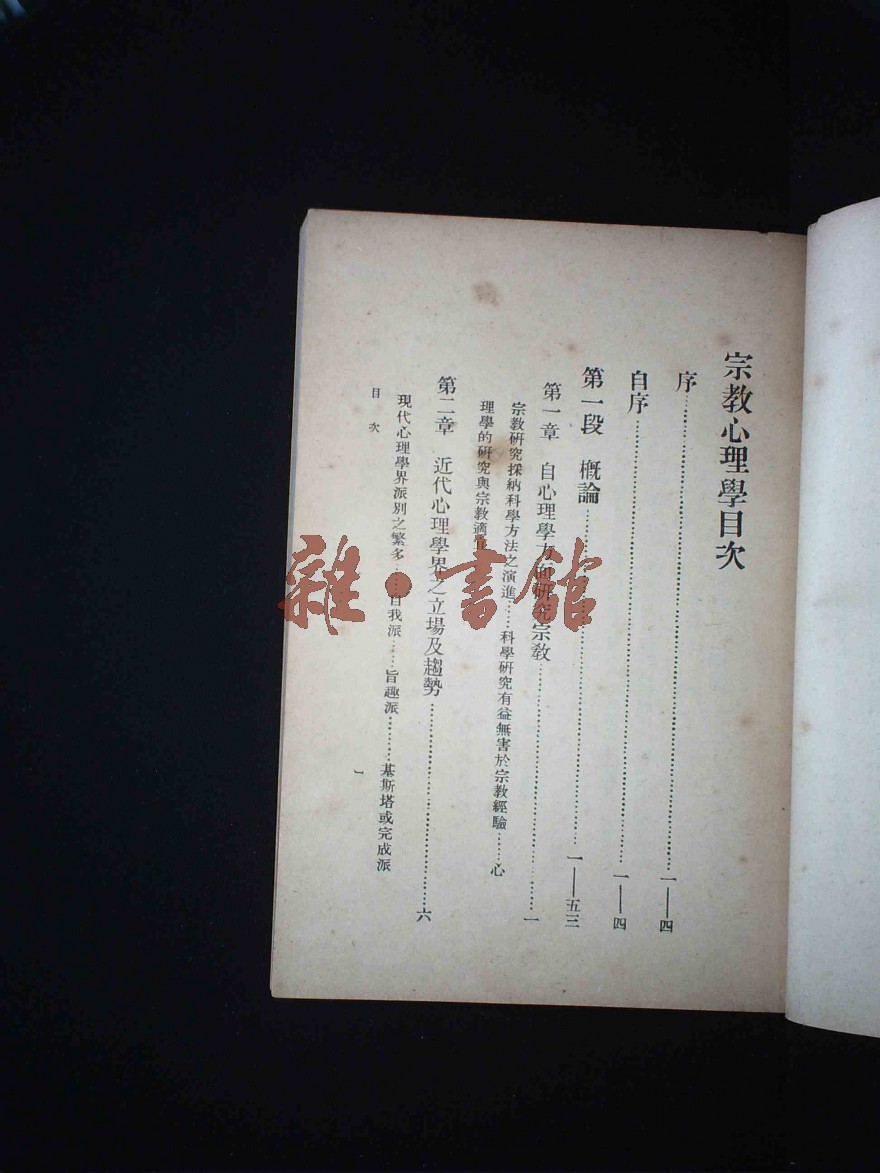 宗教心理學目次
序……一——四
自序……一——四
第一段　概論……一——五三
第一章　自心理學方面研究宗教……一
宗教研究採納科學方法之演進……科學研究有益無害於宗教經驗……心
理學的研究與宗教適
第二章　近代心理學界之立場及趨勢……六
現代心理學界派別之繁多……自我派……旨趣派……基斯塔或完成派
目次
一
雜·書館